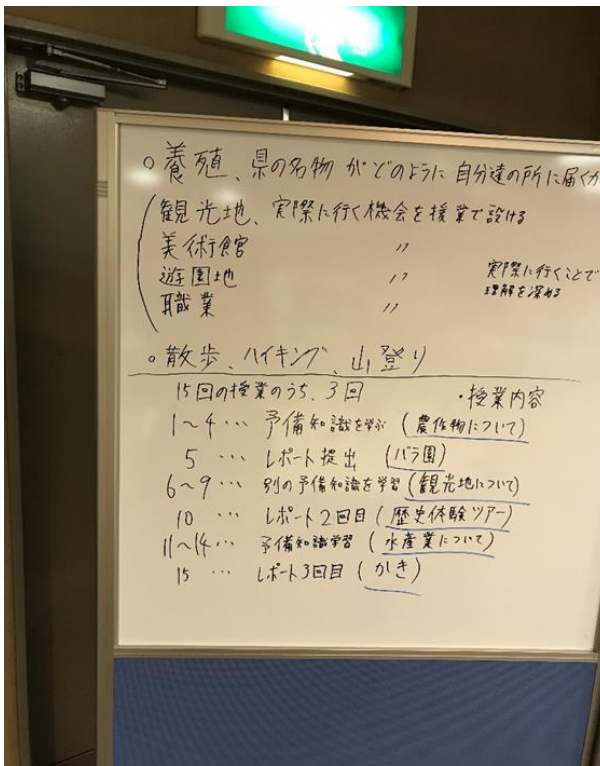 ○養殖、県の名物がどのように自分達の所に届くか
観光地、実際に行く機会を授業で設ける
美術館 〃
遊園地 〃
職業 〃
実際に行くことで
理解を深める
・散歩、ハイキング、山登り
15回の授業のうち、3回
・授業内容
1〜4… 予備知識を学ぶ(農作物について)
5 … レポート提出 (バラ園)
6〜9… 別の予備知識を学習(観光地について)
10 … レポート2回目(歴史体験ツアー)
11〜14… 予備知識学習(水産業について)
15 … レポート3回目(かき)